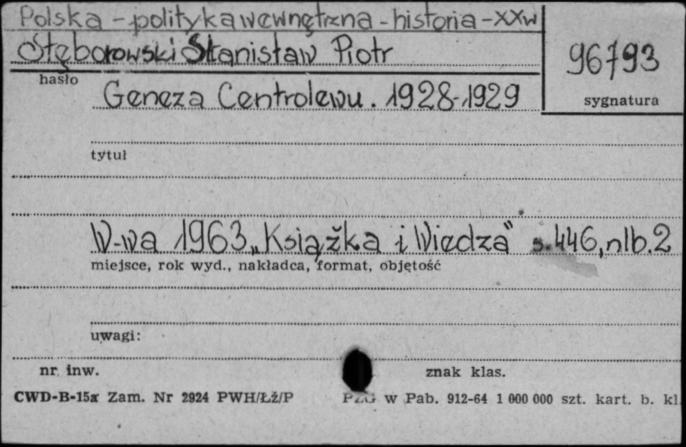 Polska - polityka wewnętrzna - historia - XXw
Stęborowski Stanisław Piotr
96793
hasło
sygnatura
Geneza Centrolewu. 1928-1929
tytuł
W-wa 1963 „Książka i Wiedza" s. 446, nlb. 2
miejsce, rok wyd., nakładca, format, objętość
uwagi:
nr. inw.
znak klas.
CWD-B-15a Zam. Nr 2924 PWH/Łż/P
w Pab. 912-64 1 000 000 szt. kart. b. kl.